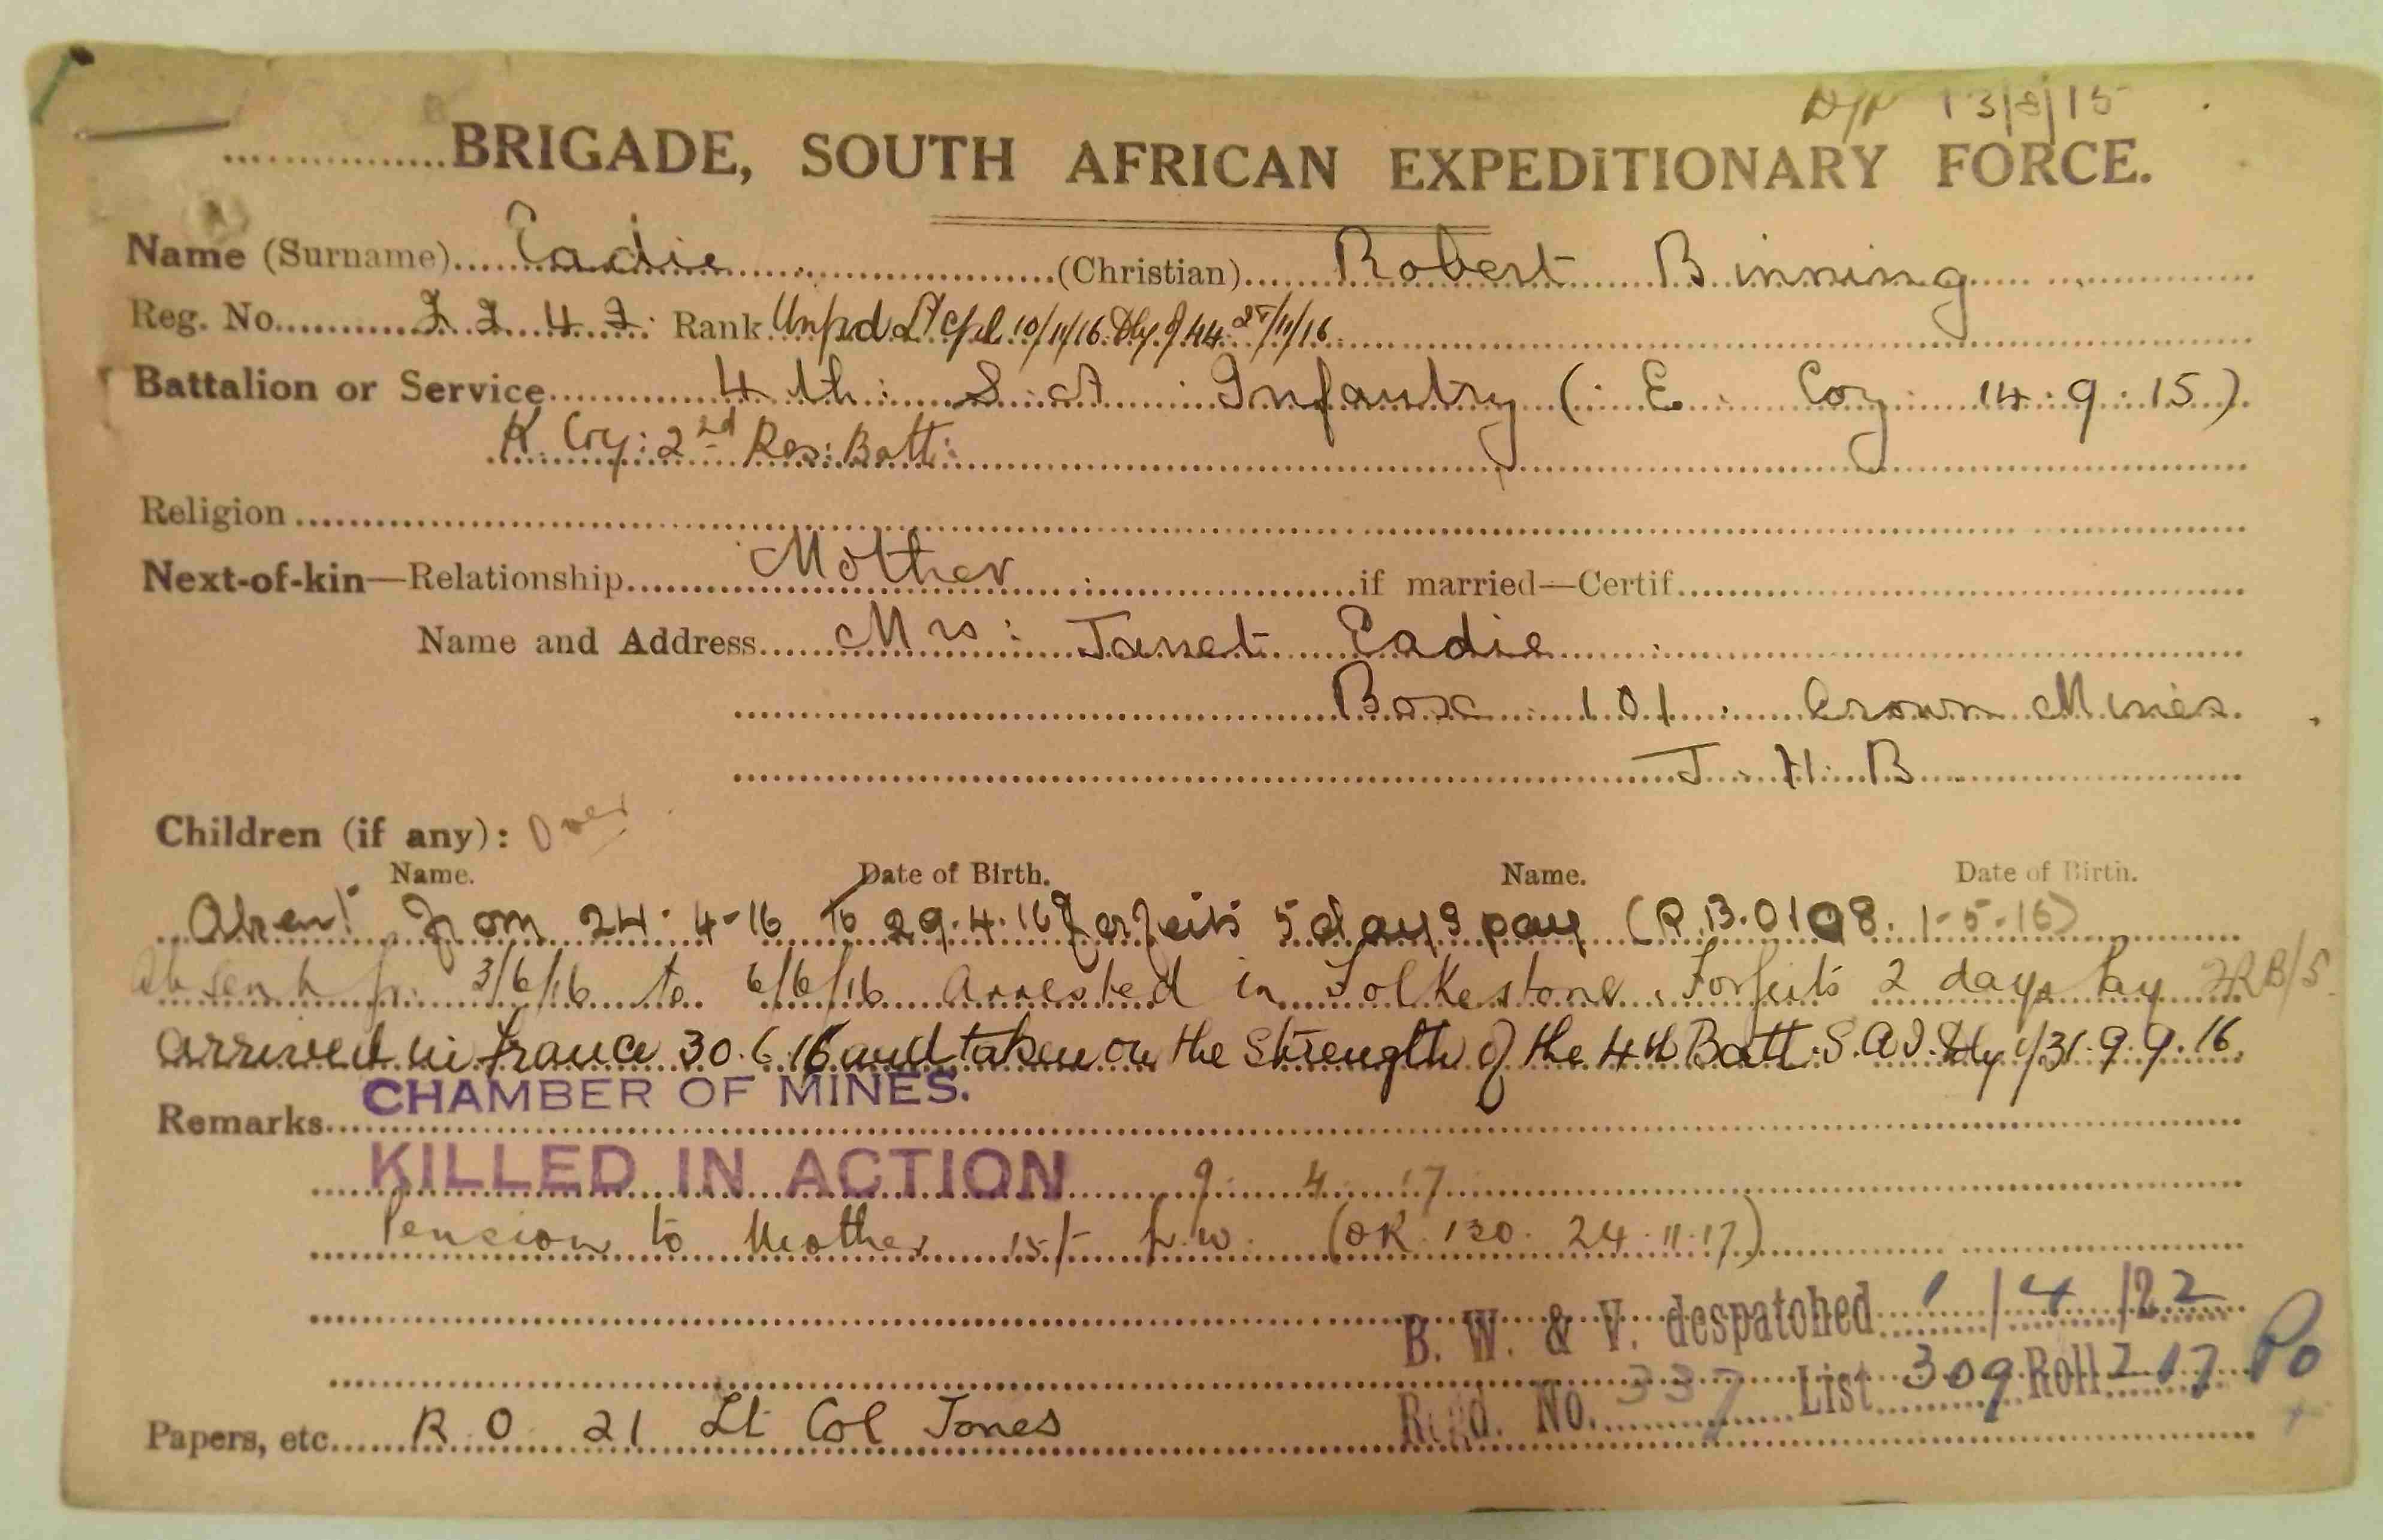 D/P 13/9/15
BRIGADE, SOUTH AFRICAN EXPEDITIONARY FORCE.
Name (Surname) Eadie (Christian) Robert Binning
Reg. No. Rank Unpd L/Cpl 10/11/16. 44. 25/11/16
Battalion or Service 4th: S. A. Infantry (: E. Coy: 14:9:15)
K. Coy: 2nd Res: Batt:
Religion
Next-of-kin—Relationship Mother if married—Certif
Name and Address Mrs: Janet Eadie
Box 101. Crown Mines.
J. H. B
Children (if any): Over
Name. Date of Birth. Name. Date of Birth.
Absent from 24-4-16 To 29.4.16 forfeits 5 days pay (P.B.0108. 1-5-16)
Absent fr. 3/6/16 to 6/6/16 Arrested in Folkestone. Forfeits 2 days Pay
arrived in france 30.6.16 and taken on the strength of the 4th Batt. S.A.I. 9.9.16.
Remarks CHAMBER OF MINES.
KILLED IN ACTION 9. 4. 17
Pension to Mother 15/- p.w. (OK 130. 24.11.17)
B. W. & V. despatched 1/4/22
Regd. No. 337 List 309 Roll 217 Po
Papers, etc. R.O. 21 Lt Col Jones